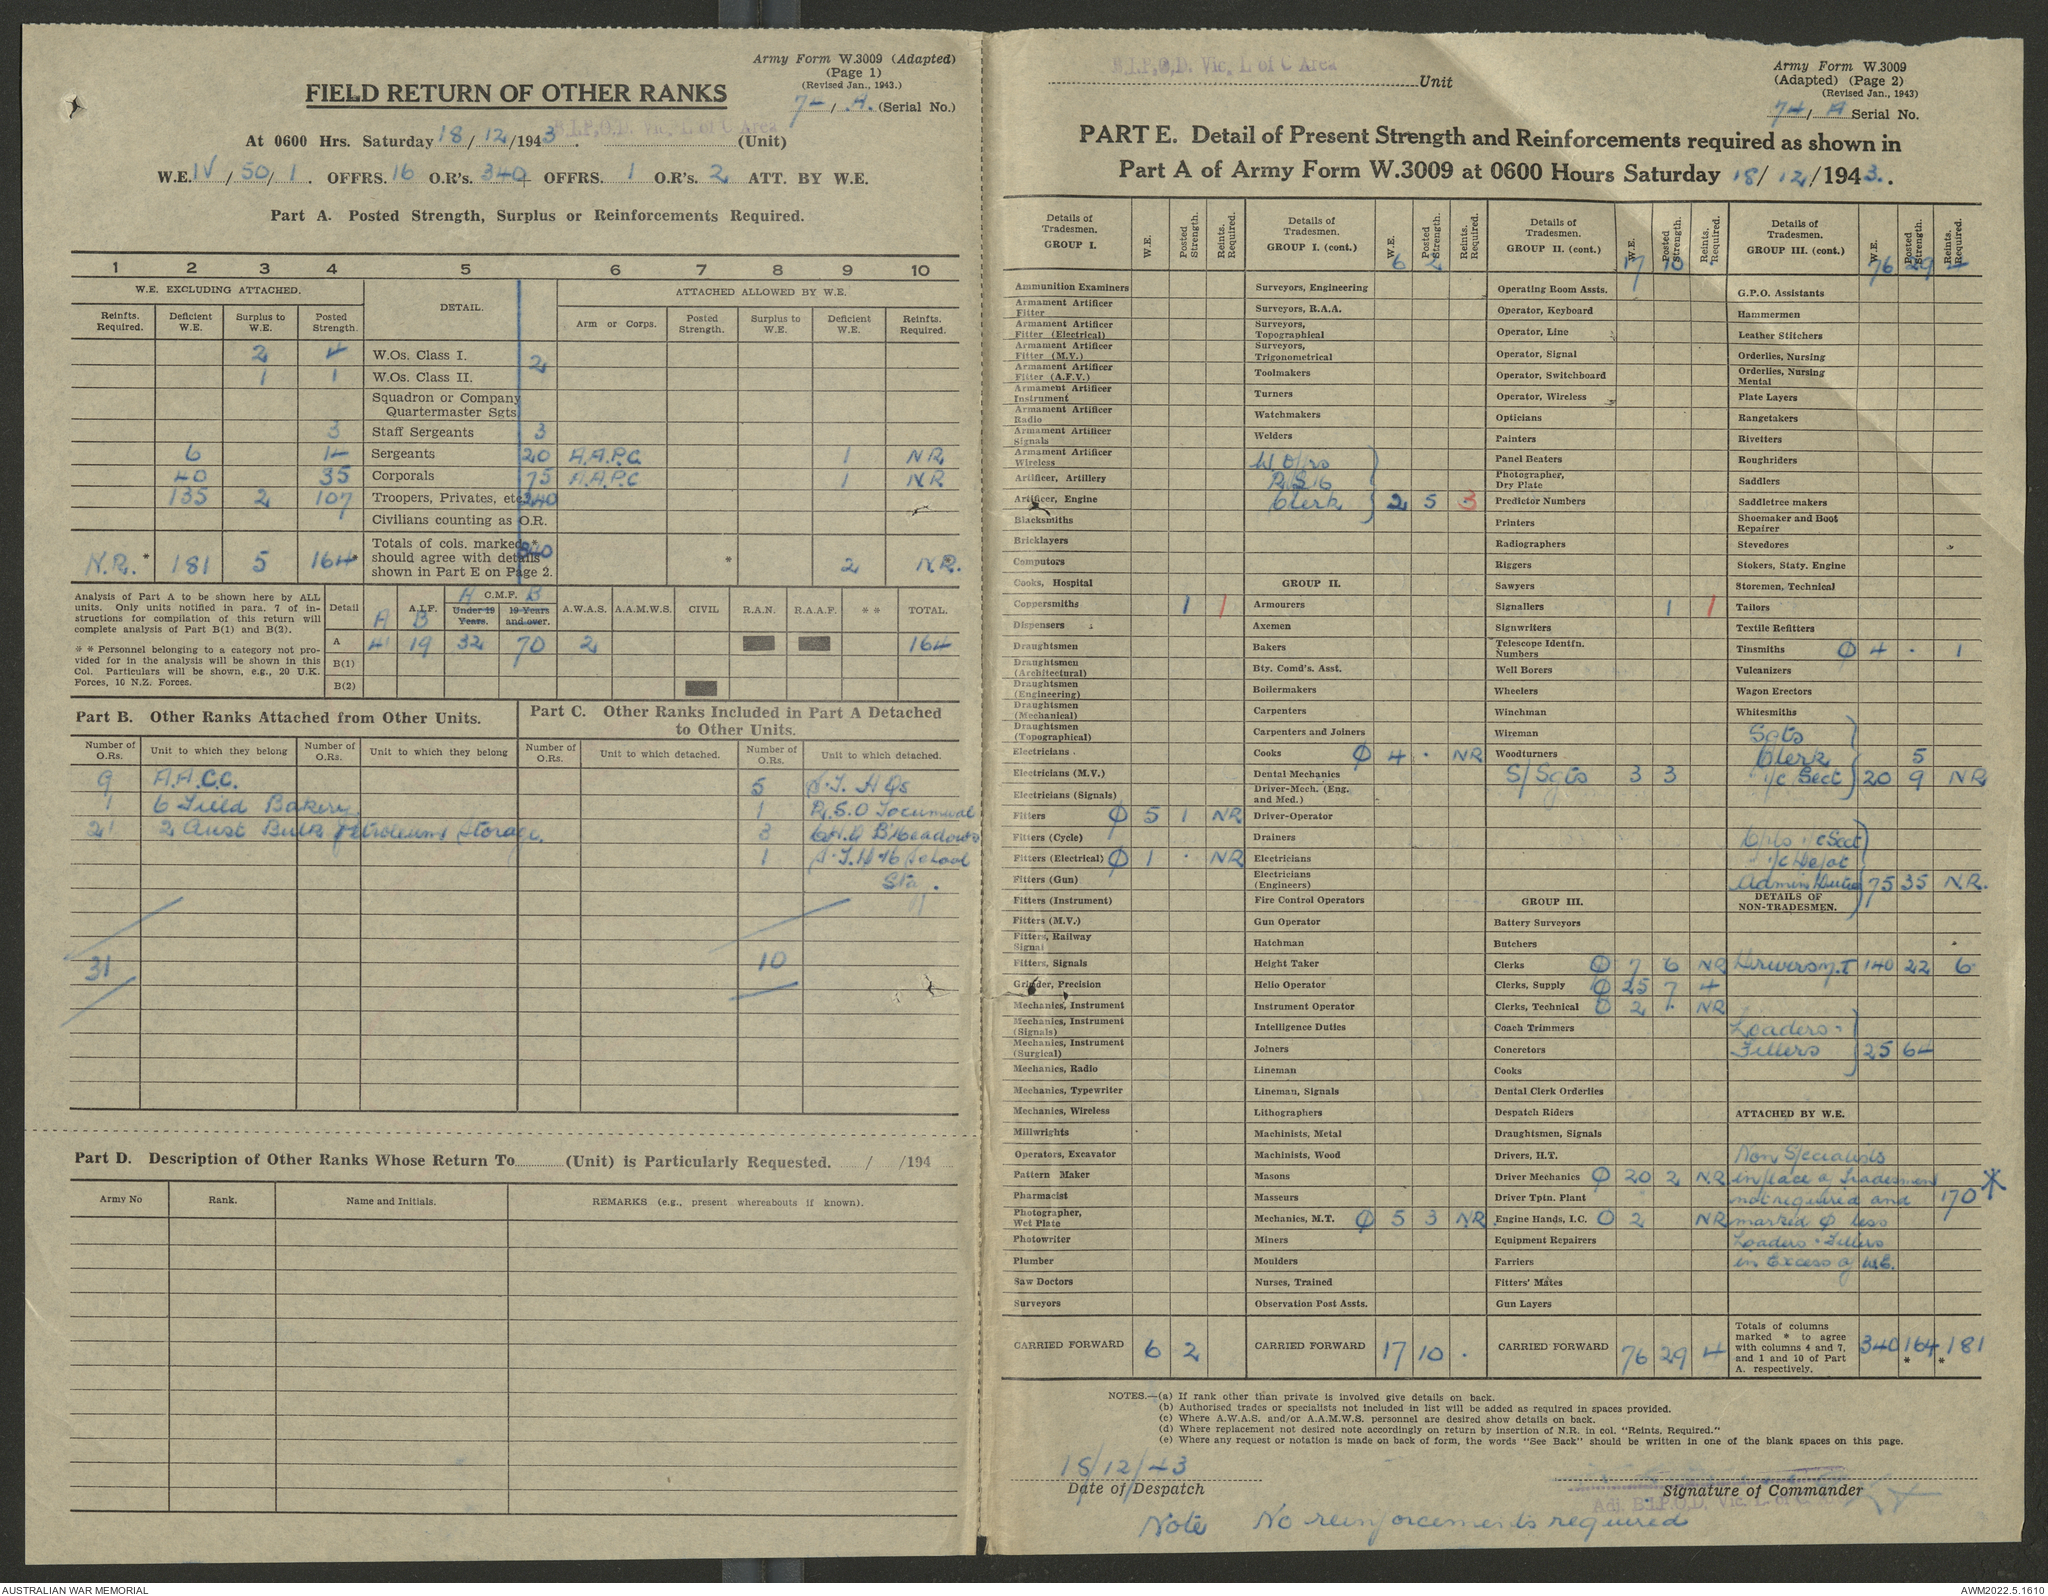 Army Form W.3009 (Adapted)
(Page 1)
(Revised Jan., 1943.)
FIELD RETURN OF OTHER RANKS
74/ A. (Serial No.)
B.I.P.O.D. Vic. L of C Area
At 0600 Hrs. Saturday 18/12/1943. (Unit)
W.E. IV/50/1. OFFRS. 16 O.R's. 340 + OFFRS. 1 O.R's. 2 ATT. BY W.E.
Part A. Posted Strength, Surplus or Reinforcements Required.
1 2 3 4 5 6 7 8 9 10
W.E. EXCLUDING ATTACHED. DETAIL. ATTACHED ALLOWED BY W.E.
Reinfts. Required. Deficient W.E. Surplus to W.E. Posted Strength. Arm or Corps. Posted Strength. Surplus to W.E. Deficient W.E. Reinfts. Required.
2 4 W.Os. Class I. 2
1 1 W.Os. Class II.
Squadron or Company Quartermaster Sgts.
3 Staff Sergeants 3
6 14 Sergeants 20 A.A.P.C. 1 NR
40 35 Corporals 75 A.A.P.C 1 NR
135 2 107 Troopers, Privates, etc. 240
Civilians counting as O.R.
N.R.* 181 5 164* Totals of cols. marked * should agree with details shown in Part E on Page 2. 340 * 2 N.R.
Analysis of Part A to be shown here by ALL units. Only units notified in para. 7 of instructions for compilation of this return will complete analysis of Part B(1) and B(2).
* * Personnel belonging to a category not provided for in the analysis will be shown in this Col. Particulars will be shown, e.g., 20 U.K. Forces, 10 N.Z. Forces.
Detail A A.I.F. B A C.M.P. B Under 19 Years. 19 Years and over. A.W.A.S. A.A.M.W.S. CIVIL R.A.N. R.A.A.F. * * TOTAL.
A 41 19 32 70 2 164
B(1)
B(2)
Part B. Other Ranks Attached from Other Units.
Number of O.Rs. Unit to which they belong Number of O.Rs. Unit to which they belong
9 A.A.C.C.
1 6 Field Bakery
21 2 Aust Bulk Petroleum Storage.
31
Part C. Other Ranks Included in Part A Detached to Other Units.
Number of O.Rs. Unit to which detached. Number of O.Rs. Unit to which detached.
5
1 R.S.O Tocumwal
3 B'Meadows
1 School
10
Part D. Description of Other Ranks Whose Return To (Unit) is Particularly Requested. / /194
Army No Rank. Name and Initials. REMARKS (e.g., present whereabouts if known).
B.I.P.O.D. Vic. L of C Area Unit
Army Form W.3009
(Adapted) (Page 2)
(Revised Jan., 1943)
74/ A Serial No.
PART E. Detail of Present Strength and Reinforcements required as shown in
Part A of Army Form W.3009 at 0600 Hours Saturday 18/12/1943.
Details of Tradesmen. GROUP I. W.E. Posted Strength. Reints. Required.
Ammunition Examiners
Armament Artificer Fitter
Armament Artificer Fitter (Electrical)
Armament Artificer Fitter (M.V.)
Armament Artificer Fitter (A.F.V.)
Armament Artificer Instrument
Armament Artificer Radio
Armament Artificer Signals
Armament Artificer Wireless
Artificer, Artillery
Artificer, Engine
Blacksmiths
Bricklayers
Computors
Cooks, Hospital
Coppersmiths 1 1
Dispensers
Draughtsmen
Draughtsmen (Architectural)
Draughtsmen (Engineering)
Draughtsmen (Mechanical)
Draughtsmen (Topographical)
Electricians
Electricians (M.V.)
Electricians (Signals)
Fitters Φ 5 1 NR
Fitters (Cycle)
Fitters (Electrical) Φ 1 . NR
Fitters (Gun)
Fitters (Instrument)
Fitters (M.V.)
Fitters, Railway Signal
Fitters, Signals
Grinder, Precision
Mechanics, Instrument
Mechanics, Instrument (Signals)
Mechanics, Instrument (Surgical)
Mechanics, Radio
Mechanics, Typewriter
Mechanics, Wireless
Millwrights
Operators, Excavator
Pattern Maker
Pharmacist
Photographer, Wet Plate
Photowriter
Plumber
Saw Doctors
Surveyors
CARRIED FORWARD 6 2
Details of Tradesmen. GROUP I. (cont.) W.E. Posted Strength. Reints. Required.
6 2
Surveyors, Engineering
Surveyors, R.A.A.
Surveyors, Topographical
Surveyors, Trigonometrical
Toolmakers
Turners
Watchmakers
Welders
W.O/rs
Clerk 2 5 3
GROUP II.
Armourers
Axemen
Bakers
Bty. Comd's. Asst.
Boilermakers
Carpenters
Carpenters and Joiners
Cooks Φ 4 . NR
Dental Mechanics
Driver-Mech. (Eng. and Med.)
Driver-Operator
Drainers
Electricians
Electricians (Engineers)
Fire Control Operators
Gun Operator
Hatchman
Height Taker
Helio Operator
Instrument Operator
Intelligence Duties
Joiners
Lineman
Lineman, Signals
Lithographers
Machinists, Metal
Machinists, Wood
Masons
Masseurs
Mechanics, M.T. Φ 5 3 NR
Miners
Moulders
Nurses, Trained
Observation Post Assts.
CARRIED FORWARD 17 10 .
Details of Tradesmen. GROUP II. (cont.) W.E. Posted Strength. Reints. Required.
17 10 .
Operating Room Assts.
Operator, Keyboard
Operator, Line
Operator, Signal
Operator, Switchboard
Operator, Wireless
Opticians
Painters
Panel Beaters
Photographer, Dry Plate
Predictor Numbers
Printers
Radiographers
Riggers
Sawyers
Signallers 1 1
Signwriters
Telescope Identfn. Numbers
Well Borers
Wheelers
Winchman
Wireman
Woodturners
S/Sgts 3 3
GROUP III.
Battery Surveyors
Butchers
Clerks Φ 7 6 NR
Clerks, Supply Φ 25 7 4
Clerks, Technical Φ 2 1. NR
Coach Trimmers
Concretors
Cooks
Dental Clerk Orderlies
Despatch Riders
Draughtsmen, Signals
Drivers, H.T.
Driver Mechanics Φ 20 2 N.R
Driver Tptn. Plant
Engine Hands, I.C. O 2 NR
Equipment Repairers
Farriers
Fitters' Mates
Gun Layers
CARRIED FORWARD 76 29 4
Details of Tradesmen. GROUP III. (cont.) W.E. Posted Strength. Reints. Required.
76 29 4
G.P.O. Assistants
Hammermen
Leather Stitchers
Orderlies, Nursing
Orderlies, Nursing Mental
Plate Layers
Rangetakers
Rivetters
Roughriders
Saddlers
Saddletree makers
Shoemaker and Boot Repairer
Stevedores
Stokers, Staty. Engine
Storemen, Technical
Tailors
Textile Refitters
Tinsmiths Φ 4 . 1
Vulcanizers
Wagon Erectors
Whitesmiths
Sgts
Clerk 5
i/c Sect 20 9 NR
Cpls i/c Sect
i/c Depot
Admin Duties 75 35 N.R.
DETAILS OF NON-TRADESMEN.
Drivers M.T 140 22 6
Loaders -
Fillers 25 64
ATTACHED BY W.E.
Non Specialists
in place of Tradesmen
not required and 170 *
marked Φ less
Loaders - Fillers
in Excess of W.E.
Totals of columns marked * to agree with columns 4 and 7, and 1 and 10 of Part A. respectively. 340 164 * * 181
NOTES.—(a) If rank other than private is involved give details on back.
(b) Authorised trades or specialists not included in list will be added as required in spaces provided.
(c) Where A.W.A.S. and/or A.A.M.W.S. personnel are desired show details on back.
(d) Where replacement not desired note accordingly on return by insertion of N.R. in col. "Reints. Required."
(e) Where any request or notation is made on back of form, the words "See Back" should be written in one of the blank spaces on this page.
18/12/43
Date of Despatch
Signature of Commander
Adj. B.I.P.O.D. Vic. L. of C. Area
Note No reinforcements required
AUSTRALIAN WAR MEMORIAL
AWM2022.5.1610